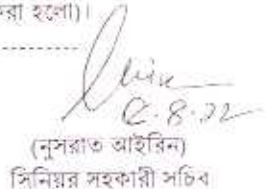 করা হলো)।
৫.৮.২২
(নুসরাত আইরিন)
সিনিয়র সহকারী সচিব